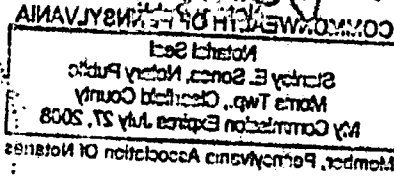 COMMONWEALTH OF PENNSYLVANIA
Notarial Seal
Stanley E. Sones, Notary Public
Morris Twp., Clearfield County
My Commission Expires July 27, 2008
Member, Pennsylvania Association Of Notaries